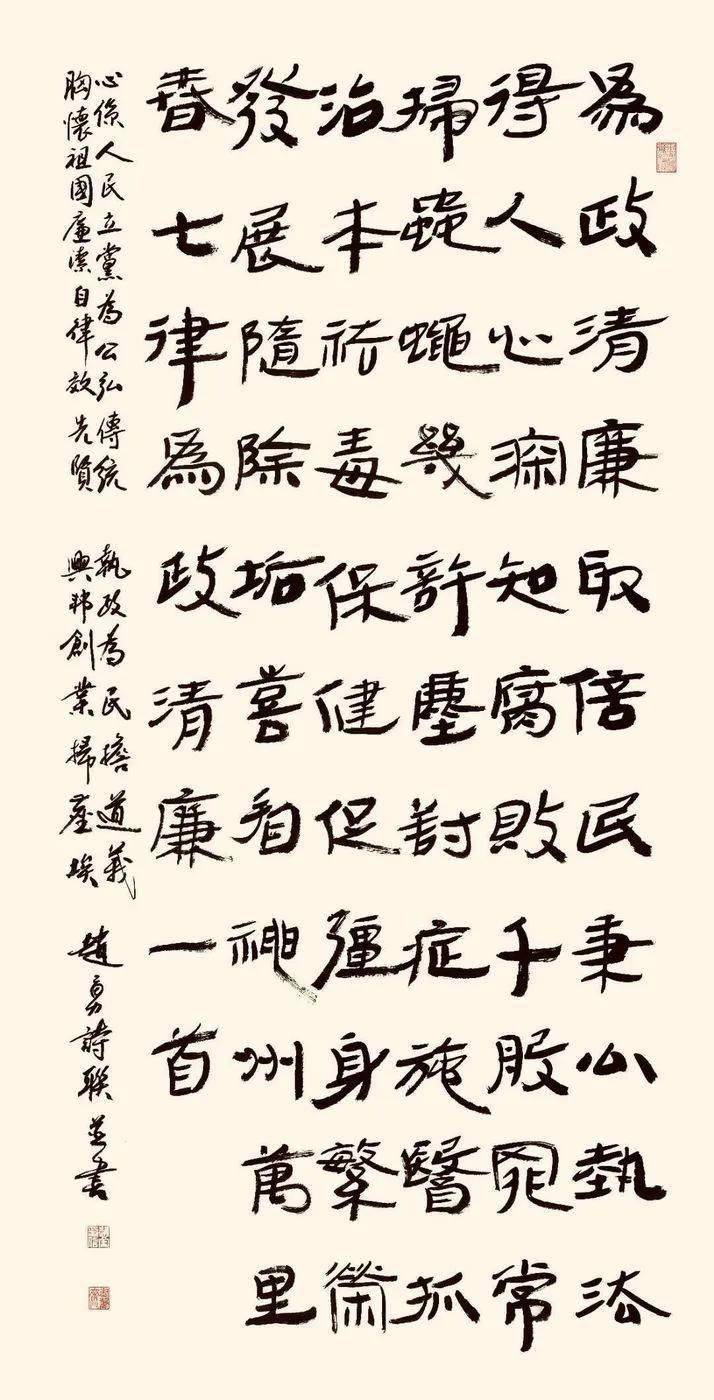 爲政清廉取信民秉公執法
得人心深知腐敗千般罪常
掃蠅幾許塵對症施醫抓
治本祛毒保健促彊身繁榮
發展隨除垢喜看神州萬里
春七律爲政清廉一首
心係人民立黨為公弘傳統
胸懷祖國廉潔自律效先賢
執政為民擔道義
興邦創業掃塵埃
趙勇詩聯並書